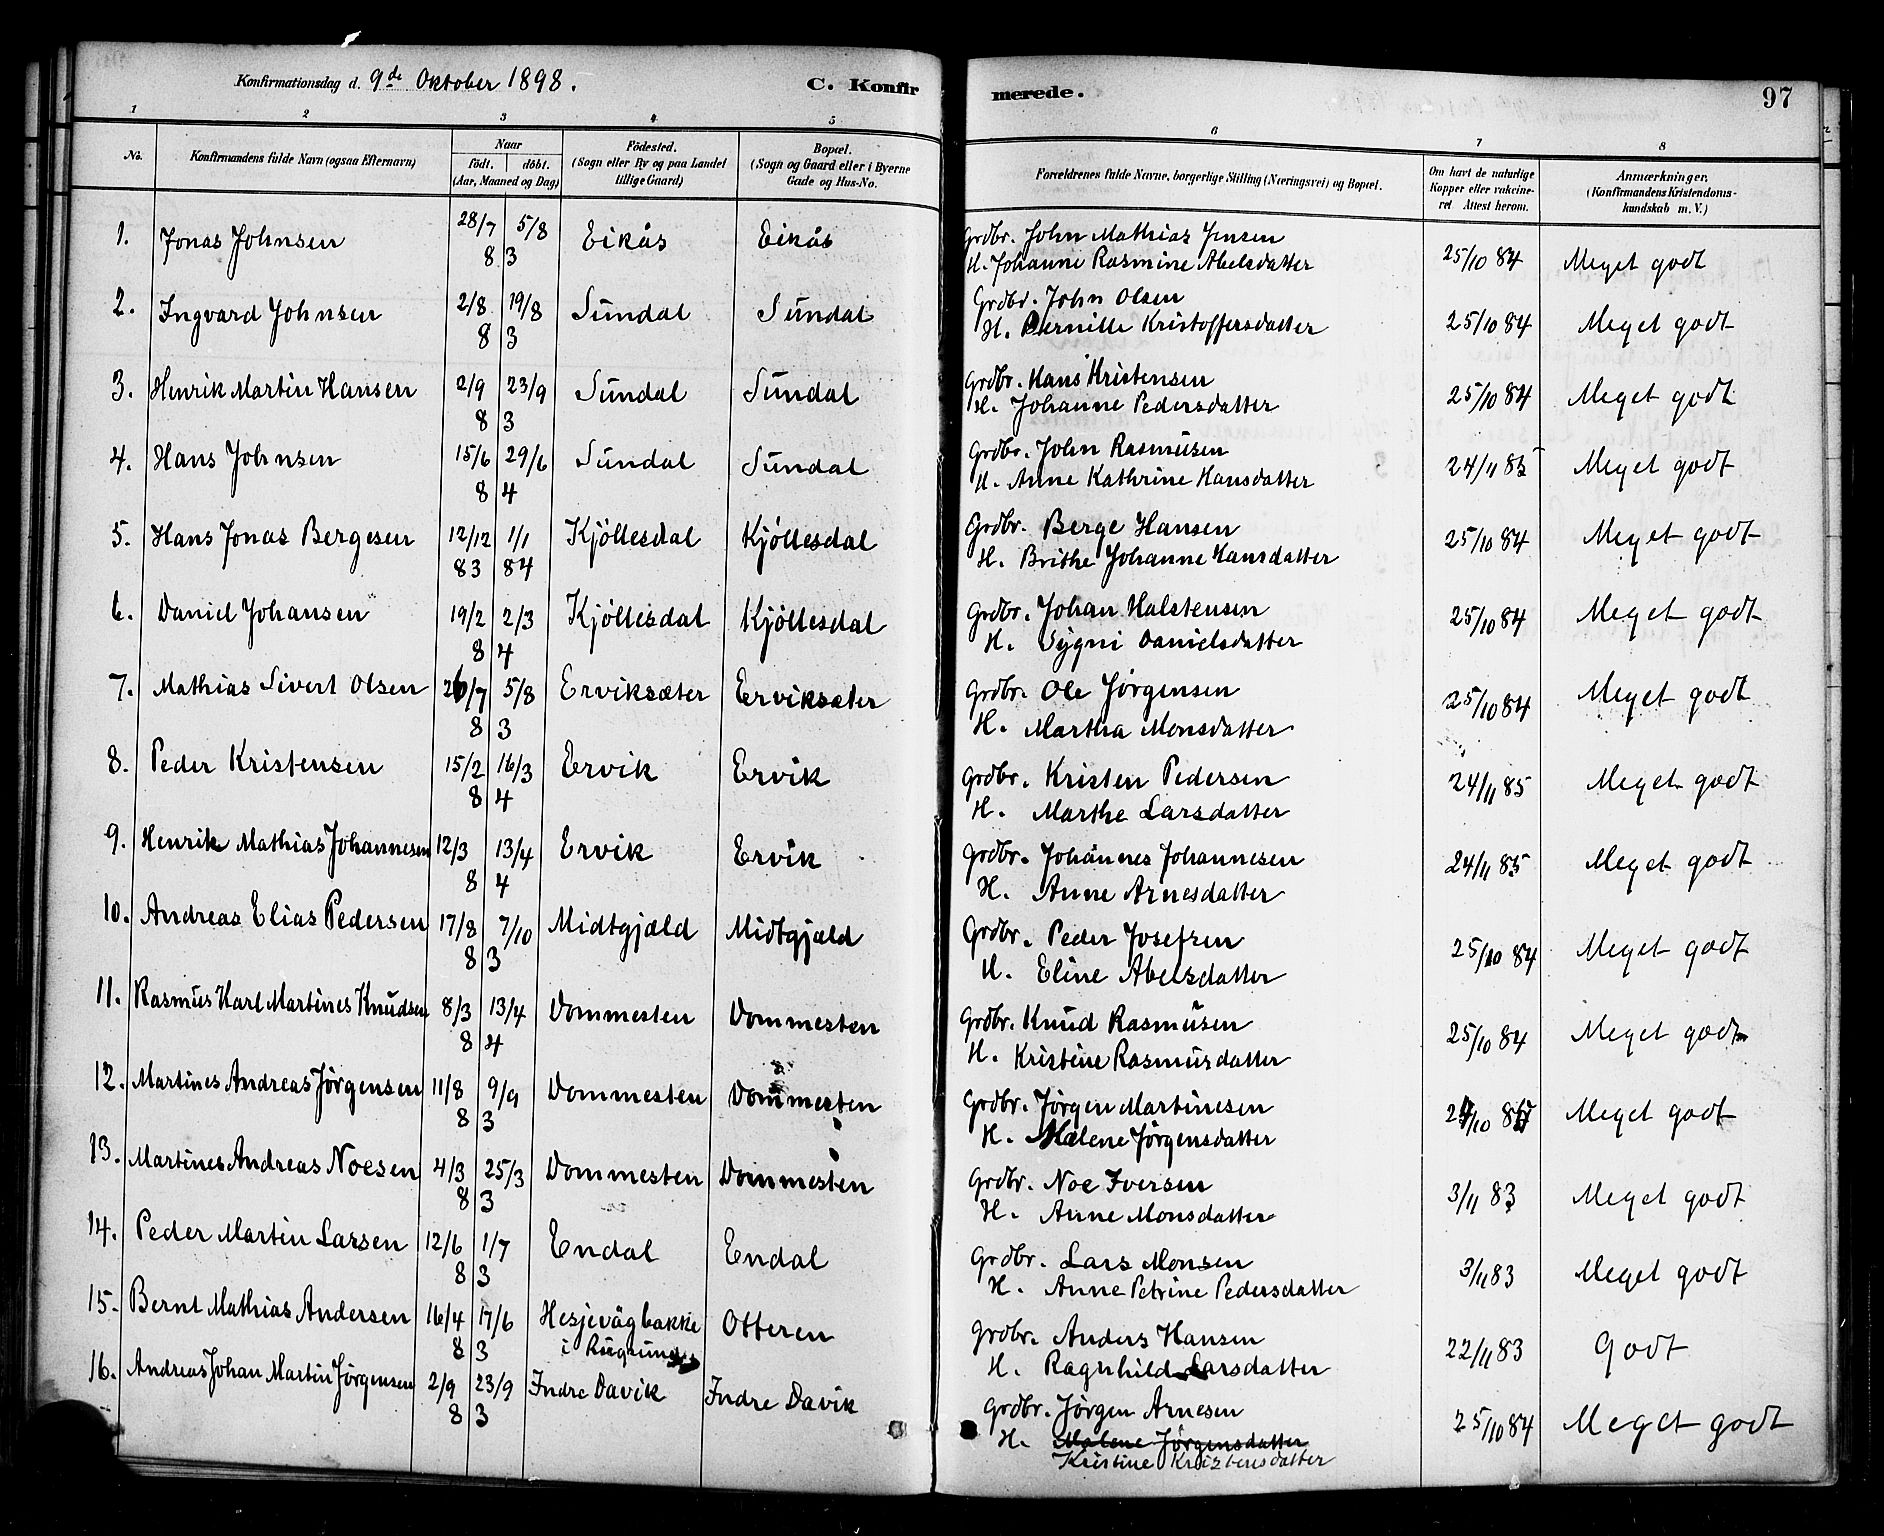 Konfirmationsdag d. 9de Oktober 1898.
C. Konfirmerede.
97
1 2 3 4 5 6 7 8
No.
Konfirmandens fulde Navn (ogsaa Efternavn)
Naar
født. døbt.
(Aar, Maaned og Dag)
Fødested.
(Sogn eller By og paa Landet
tillige Gaard)
Bopæl.
(Sogn og Gaard eller i Byerne
Gade og Hus-No.
Forældrenes fulde Navne, borgerlige Stilling (Næringsvei) og Bopæl.
Om havt de naturlige
Kopper eller vakcine-
ret Attest herom.
Anmærkninger.
(Konfirmandens Kristendoms-
kundskab m. V.)
1. Jonas Johnsen 28/7 5/8 Eikås Eikås Grdbr. John Mathias Jensen 25/10 84 Meget godt
8 3 H. Johanne Rasmine Abelsdatter
2. Ingvard Johnsen 2/8 19/8 Sundal Sundal Grdbr. John Olsen 25/10 84 Meget godt
8 3 H. Pernille Kristoffersdatter
3. Henrik Martin Hansen 2/9 23/9 Sundal Sundal Grdbr. Hans Kristensen 25/10 84 Meget godt
8 3 H. Johanne Pedersdatter
4. Hans Johnsen 15/6 29/6 Sundal Sundal Grdbr. John Rasmusen 24/11 85 Meget godt
8 4 H. Anne Kathrine Hansdatter
5. Hans Jonas Bergesen 12/12 1/1 Kjöllesdal Kjöllesdal Grdbr. Berge Hansen 25/10 84 Meget godt
83 84 H. Brithe Johanne Hansdatter
6. Daniel Johansen 19/2 2/3 Kjöllesdal Kjöllesdal Grdbr. Johan Halstensen 25/10 84 Meget godt
8 4 H. Sygni Danielsdatter
7. Mathias Sivert Olsen 26/7 5/8 Erviksæter Erviksæter Grdbr. Ole Jörgensen 25/10 84 Meget godt
8 3 H. Martha Monsdatter
8. Peder Kristensen 15/2 16/3 Ervik Ervik Grdbr. Kristen Pedersen 24/11 85 Meget godt
8 4 H. Marthe Larsdatter
9. Henrik Mathias Johannesen 12/3 13/4 Ervik Ervik Grdbr. Johannes Johannesen 24/11 85 Meget godt
8 4 H. Anne Arnesdatter
10. Andreas Elias Pedersen 17/8 7/10 Midtgjæld Midtgjæld Grdbr. Peder Josefsen 25/10 84 Meget godt
8 3 H. Eline Abelsdatter
11. Rasmus Karl Martines Knudsen 8/3 13/4 Dommesten Dommesten Grdbr. Knud Rasmusen 25/10 84 Meget godt
8 4 H. Kristine Rasmusdatter
12. Martines Andreas Jörgensen 11/8 9/9 Dommesten Dommesten Grdbr. Jörgen Martinesen Meget godt
8 3 H. Malene Jörgensdatter
13. Martines Andreas Noesen 4/3 25/3 Dommesten Dommesten Grdbr. Noe Iversen 3/11 83 Meget godt
8 3 H. Anne Monsdatter
14. Peder Martin Larsen 12/6 1/7 Endal Endal Grdbr. Lars Monsen 3/11 83 Meget godt
8 3 H. Anne Petrine Pedersdatter
15. Bernt Mathias Andersen 16/4 17/6 Hesjevågbakke Otteren Grdbr. Anders Hansen 22/11 83 Godt
8 3 i Rugsund H. Ragnhild Larsdatter
16. Andreas Johan Martin Jörgensen 2/9 23/9 Indre Davik Indre Davik Grdbr. Jörgen Arnesen 25/10 84 Meget godt
8 3 H. Malene Jörgensdatter
Kristine Kristensdatter